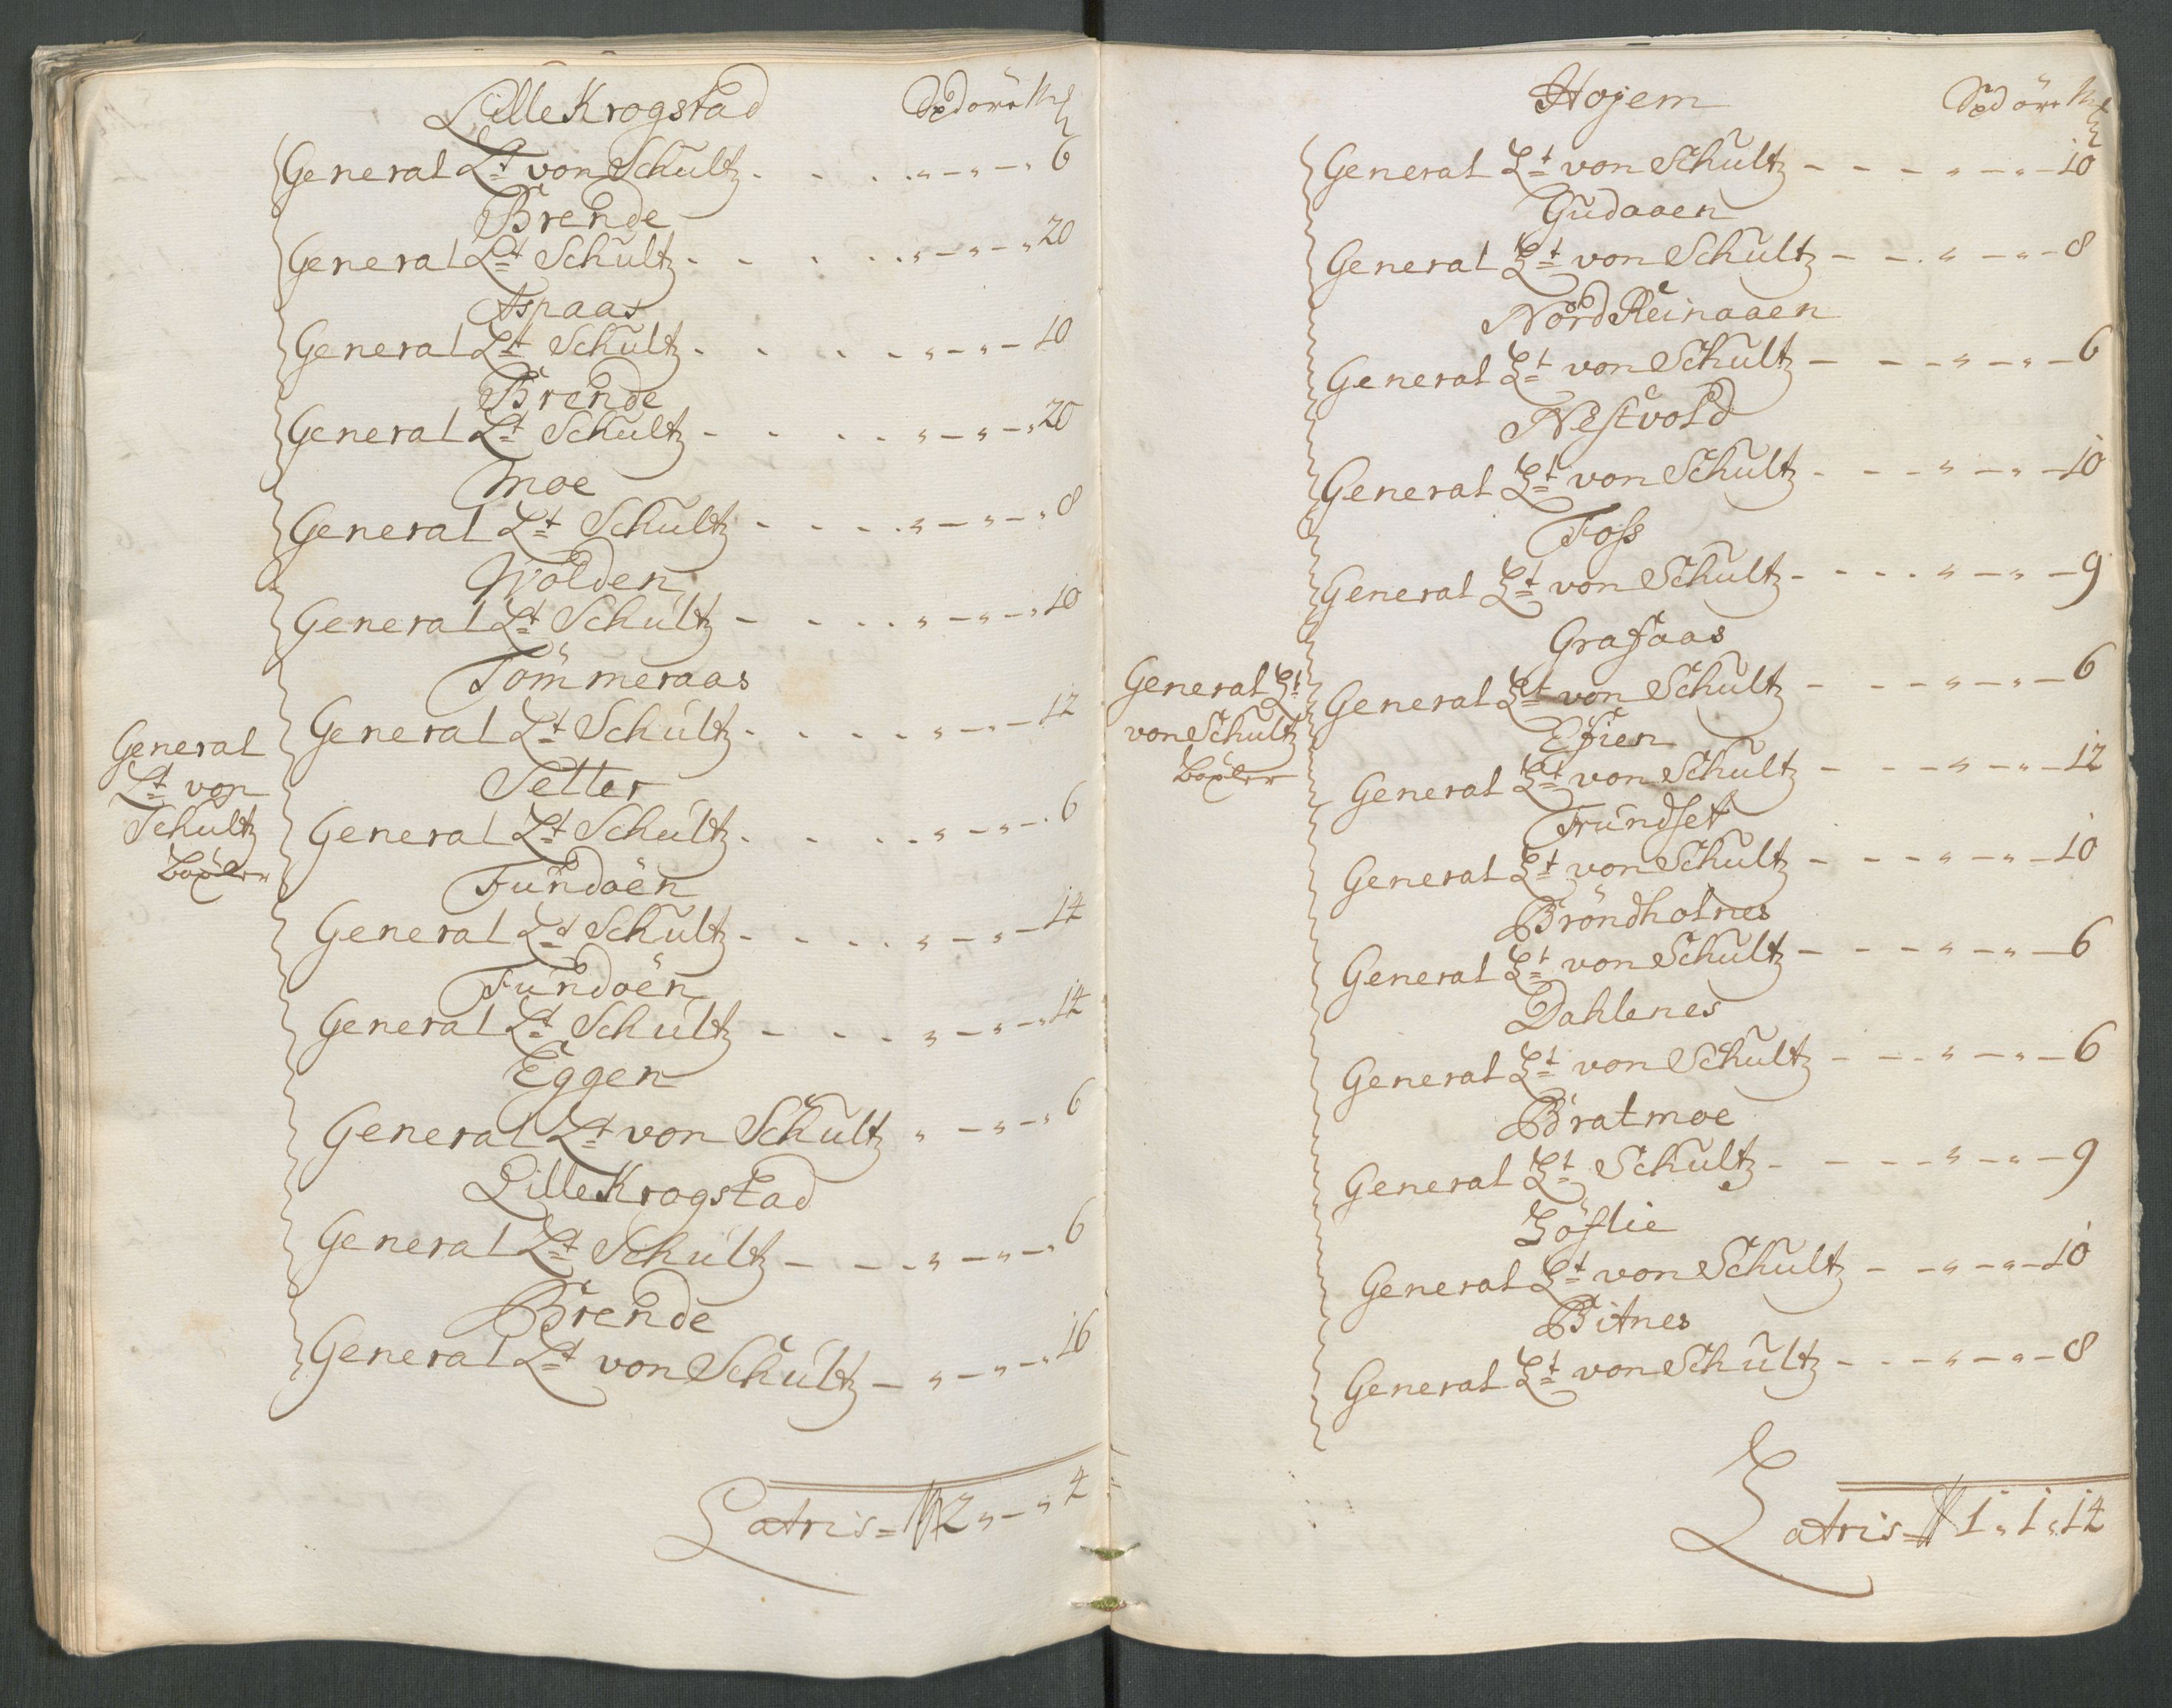 Lille Krogstad
General Lt von Schultz . . . . „ – „ – „ 6
Brende
General Lt Schultz . . . . „ – „ – „ 20
Aspaas
General Lt Schultz . . . . „ – „ – 10
Brende
General Lt Schultz - . . . „ – „ – „ 20
Moe
General Lt Schultz - . . . „ – „ – „ 8
Wolden
General Lt Schultz – . . . „ – „ – „ 10
Tömmeraas
General Lt Schultz . . . . „ – „ – 12
Setter
General Lt Schultz . . . . „ – „ – 6
Fundaën
General Lt Schultz . . . . „ – „ – 14
Fundaën
General Lt Schultz – . . . „ – „ – „ 14
Eggen
General Lt von Schultz „ – „ – „ 6
Lille Krogstad
General Lt Schultz – – – „ – „ – „ 6
Brende
General Lt von Schultz – „ – „ – „ 16
General
Lt von
Schultz
Latris = 2 „ – „ 4
Hojem
General Lt von Schultz – – – „ – „ – 10
Gudaaen
General Lt von Schultz – – . „ – „ – 8
Nord Reinaaen
General Lt von Schultz – – – „ – „ – 6
Nestvold
General Lt von Schultz . – – „ – „ – 10
Foss
General Lt von Schultz - - - . „ – „ – 9
Grafaas
General Lt von Schultz – – – „ – „ – 6
Efien
General Lt von Schultz – – – „ – „ – 12
Trundset
General Lt von Schultz – – – „ – „ – 10
Bröndholnes
General Lt von Schultz – – – „ – „ – 6
Dahlenes
General Lt von Schultz – – . „ – „ – 6
Bratmoe
General Lt Schultz . – – – „ – „ – 9
Göflie
General Lt von Schultz – – „ – „ – 10
Bitnes
General Lt von Schultz – - – „ – „ – 8
General Lt
von Schultz
Latris = 1 „ 1 „ 14